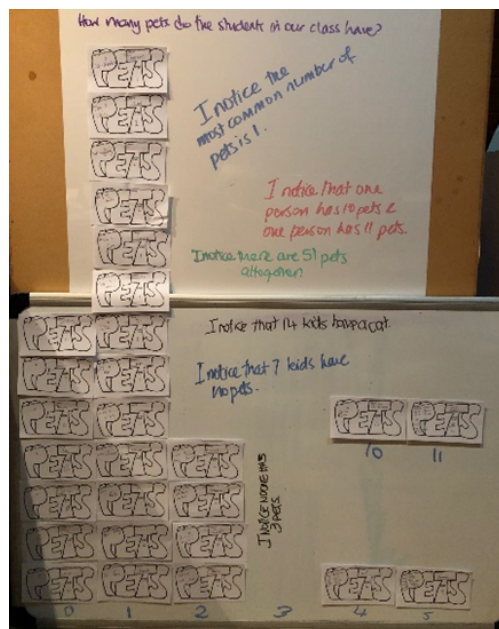 How many pets do the students in our class have?
I notice the
most common number of
pets is 1.
I notice that one
person has 10 pets &
one person has 11 pets.
I notice there are 51 pets
altogether.
I notice that 14 kids have a cat.
I notice that 7 kids have
no pets.
I NOTICE NO ONE HAS
3 PETS
PETS
PETS
PETS
PETS
PETS
PETS
PETS PETS
PETS PETS
PETS PETS
PETS PETS
10 11
PETS PETS PETS
PETS PETS PETS
PETS PETS PETS
PETS PETS PETS PETS PETS
0 1 2 3 4 5